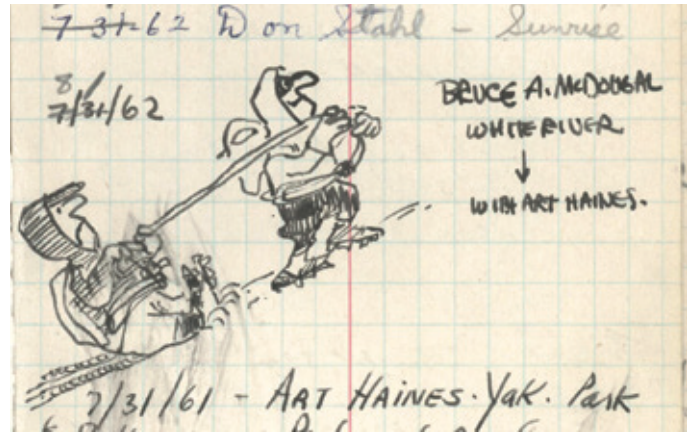 7-31-62 Don Stahl - Sunrise
8/1
7/31/62
BRUCE A. McDOUGAL
WHITE RIVER
WITH ART HAINES.
7/31/61 - ART HAINES. Yak. Park